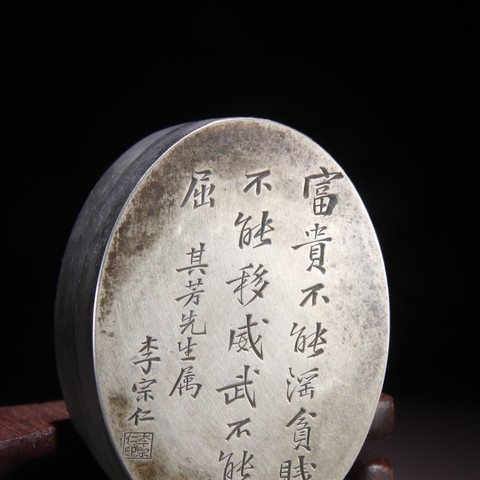 富貴不能滛貧賤
不能移威武不能
屈
其芳先生属
李宗仁
李宗仁印